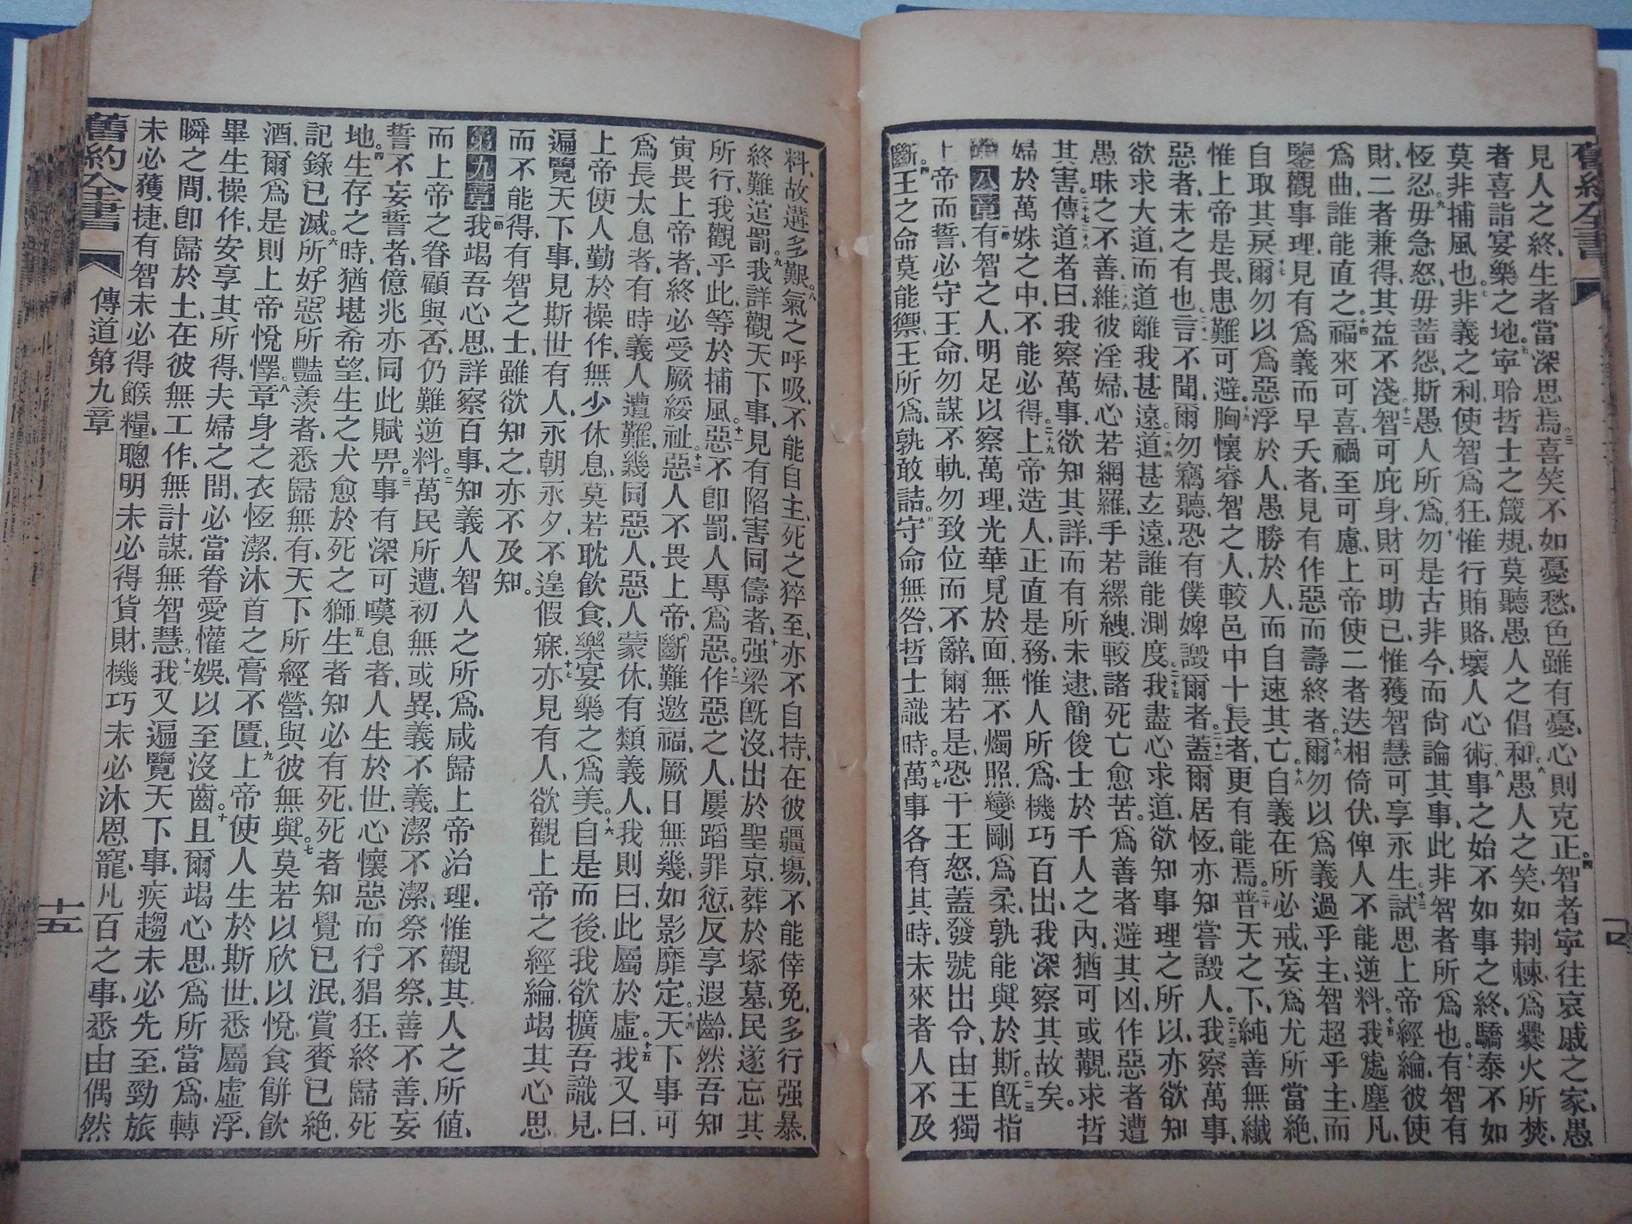 舊約全書
見人之終、生者當深思焉、三喜笑不如憂愁、色雖有憂、心則克正、四智者寧往哀戚之家、愚
者喜詣宴樂之地、五寧聆哲士之箴規、莫聽愚人之倡和、六愚人之笑、如荆棘爲爨、火所焚、
莫非捕風也、七非義之利、使智爲狂、惟行賄賂、壞人心術、八事之始、不如事之終、驕泰不如
恆忍、九毋急怒、毋蓄怨、斯愚人所爲、十勿是古非今、而尙論其事、此非智者所爲也、十一有智有
財、二者兼得、其益不淺、十二智可庇身、財可助己、惟獲智慧、可享永生、十三試思上帝經綸、彼使
爲曲、誰能直之、十四福來可喜、禍至可慮、上帝使二者迭相倚伏、俾人不能逆料、十五我處塵凡、
鑒觀事理、見有爲義而早夭者、見有作惡而壽終者、十六爾勿以爲義過乎主、智超乎主、而
自取其戾、十七爾勿以爲惡浮於人、愚勝於人、而自速其亡、十八自義在所必戒、妄爲尤所當絕、
惟上帝是畏、患難可避、十九胸懷睿智之人、較邑中十長者、更有能焉、二十普天之下、純善無纖
惡者、未之有也、二十一言不聞、爾勿竊聽、恐有僕婢譭爾者、二十二蓋爾居恆、亦知嘗譭人、二十三我察萬事、
欲求大道、而道離我甚遠、二十四道甚立遠、誰能測度、二十五我盡心求道、欲知事理之所以、亦欲知
愚昧之不善、二十六維彼淫婦、心若網羅、手若縲絏、較諸死亡愈苦、爲善者避其凶、作惡者遭
其害、二十七二十八傳道者曰、我察萬事、欲知其詳、而有所未逮、簡俊士於千人之內、猶可或覯、求哲
婦於萬姝之中、不能必得、二十九上帝造人、正直是務、惟人所爲、機巧百出、我深察其故矣。
第八章一節有智之人、明足以察萬理、光華見於面、無不燭照、變剛爲柔、孰能與於斯、二三既指
上帝而誓、必守王命、勿謀不軌、勿致位而不辭、爾若是、恐干王怒、蓋發號出令、由王獨
斷、四王之命莫能禦、王所爲、孰敢詰、五守命無咎、哲士識時、六七萬事各有其時、未來者人不及
料、故遘多艱、八氣之呼吸、不能自主、死之猝至、亦不自持、在彼疆場、不能倖免、多行强暴、
終難逭罰、九我詳觀天下事、見有陷害同儔者、十强梁既沒、出於聖京、葬於塚墓、民遂忘其
所行、我觀乎此、等於捕風、十一惡不卽罰、人專爲惡、十二作惡之人、屢蹈罪愆、反享遐齡、然吾知
寅畏上帝者、終必受厥綏祉、十三惡人不畏上帝、斷難邀福、厥日無幾、如影靡定、十四天下事可
爲長太息者、有時義人遭難、幾同惡人、惡人蒙休、有類義人、我則曰、此屬於虛、十五我又曰、
上帝使人勤於操作、無少休息、莫若耽飲食、樂宴樂之爲美、十六自是而後、我欲擴吾識見、
遍覽天下事、見斯世有人、永朝永夕、不遑假寐、十七亦見有人、欲觀上帝之經綸、竭其心思、
而不能得、有智之士、雖欲知之、亦不及知。
第九章一節我竭吾心思、詳察百事、知義人智人之所爲、咸歸上帝治理、惟觀其人之所値、
而上帝之眷顧與否、仍難逆料、二萬民所遭、初無或異、義不義、潔不潔、祭不祭、善不善、妄
誓不妄誓者、億兆亦同此賦畀、三事有深可嘆息者、人生於世、心懷惡而行猖狂、終歸死
地、四生存之時、猶堪希望、生之犬愈於死之獅、五生者知必有死、死者知覺已泯、賞賚已絕、
記錄已滅、六所好惡、所豔羡者、悉歸無有、天下所經營、與彼無與、七莫若以欣以悅食餅飲
酒、爾爲是、則上帝悅懌、八章身之衣恆潔、沐首之膏不匱、九上帝使人生於斯世、悉屬虛浮、
畢生操作、安享其所得、夫婦之間、必當眷愛懽娛、以至沒齒、十且爾竭心思、爲所當爲、轉
瞬之間、卽歸於土、在彼無工作、無計謀、無智慧、十一我又遍覽天下事、疾趨未必先至、勁旅
未必獲捷、有智未必得餱糧、聰明未必得貨財、機巧未必沐恩寵、凡百之事、悉由偶然
舊約全書
傳道第九章
十五